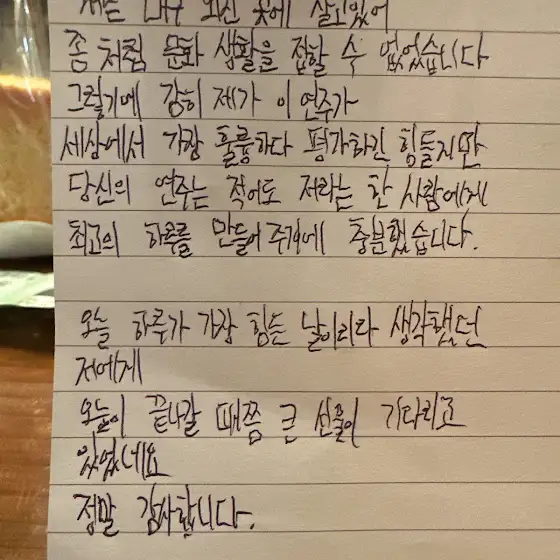 저는 매우 외진 곳에 살고있어
좀처럼 문화 생활을 접할 수 없었습니다
그렇기에 감히 제가 이 연주가
세상에서 가장 훌륭하다 평가하긴 힘들지만
당신의 연주는 적어도 저라는 한 사람에게
최고의 하루를 만들어주기에 충분했습니다.
오늘 하루가 가장 힘든 날이리라 생각했던
저에게
오늘이 끝나갈 때쯤 큰 선물이 기다리고
있었네요
정말 감사합니다.